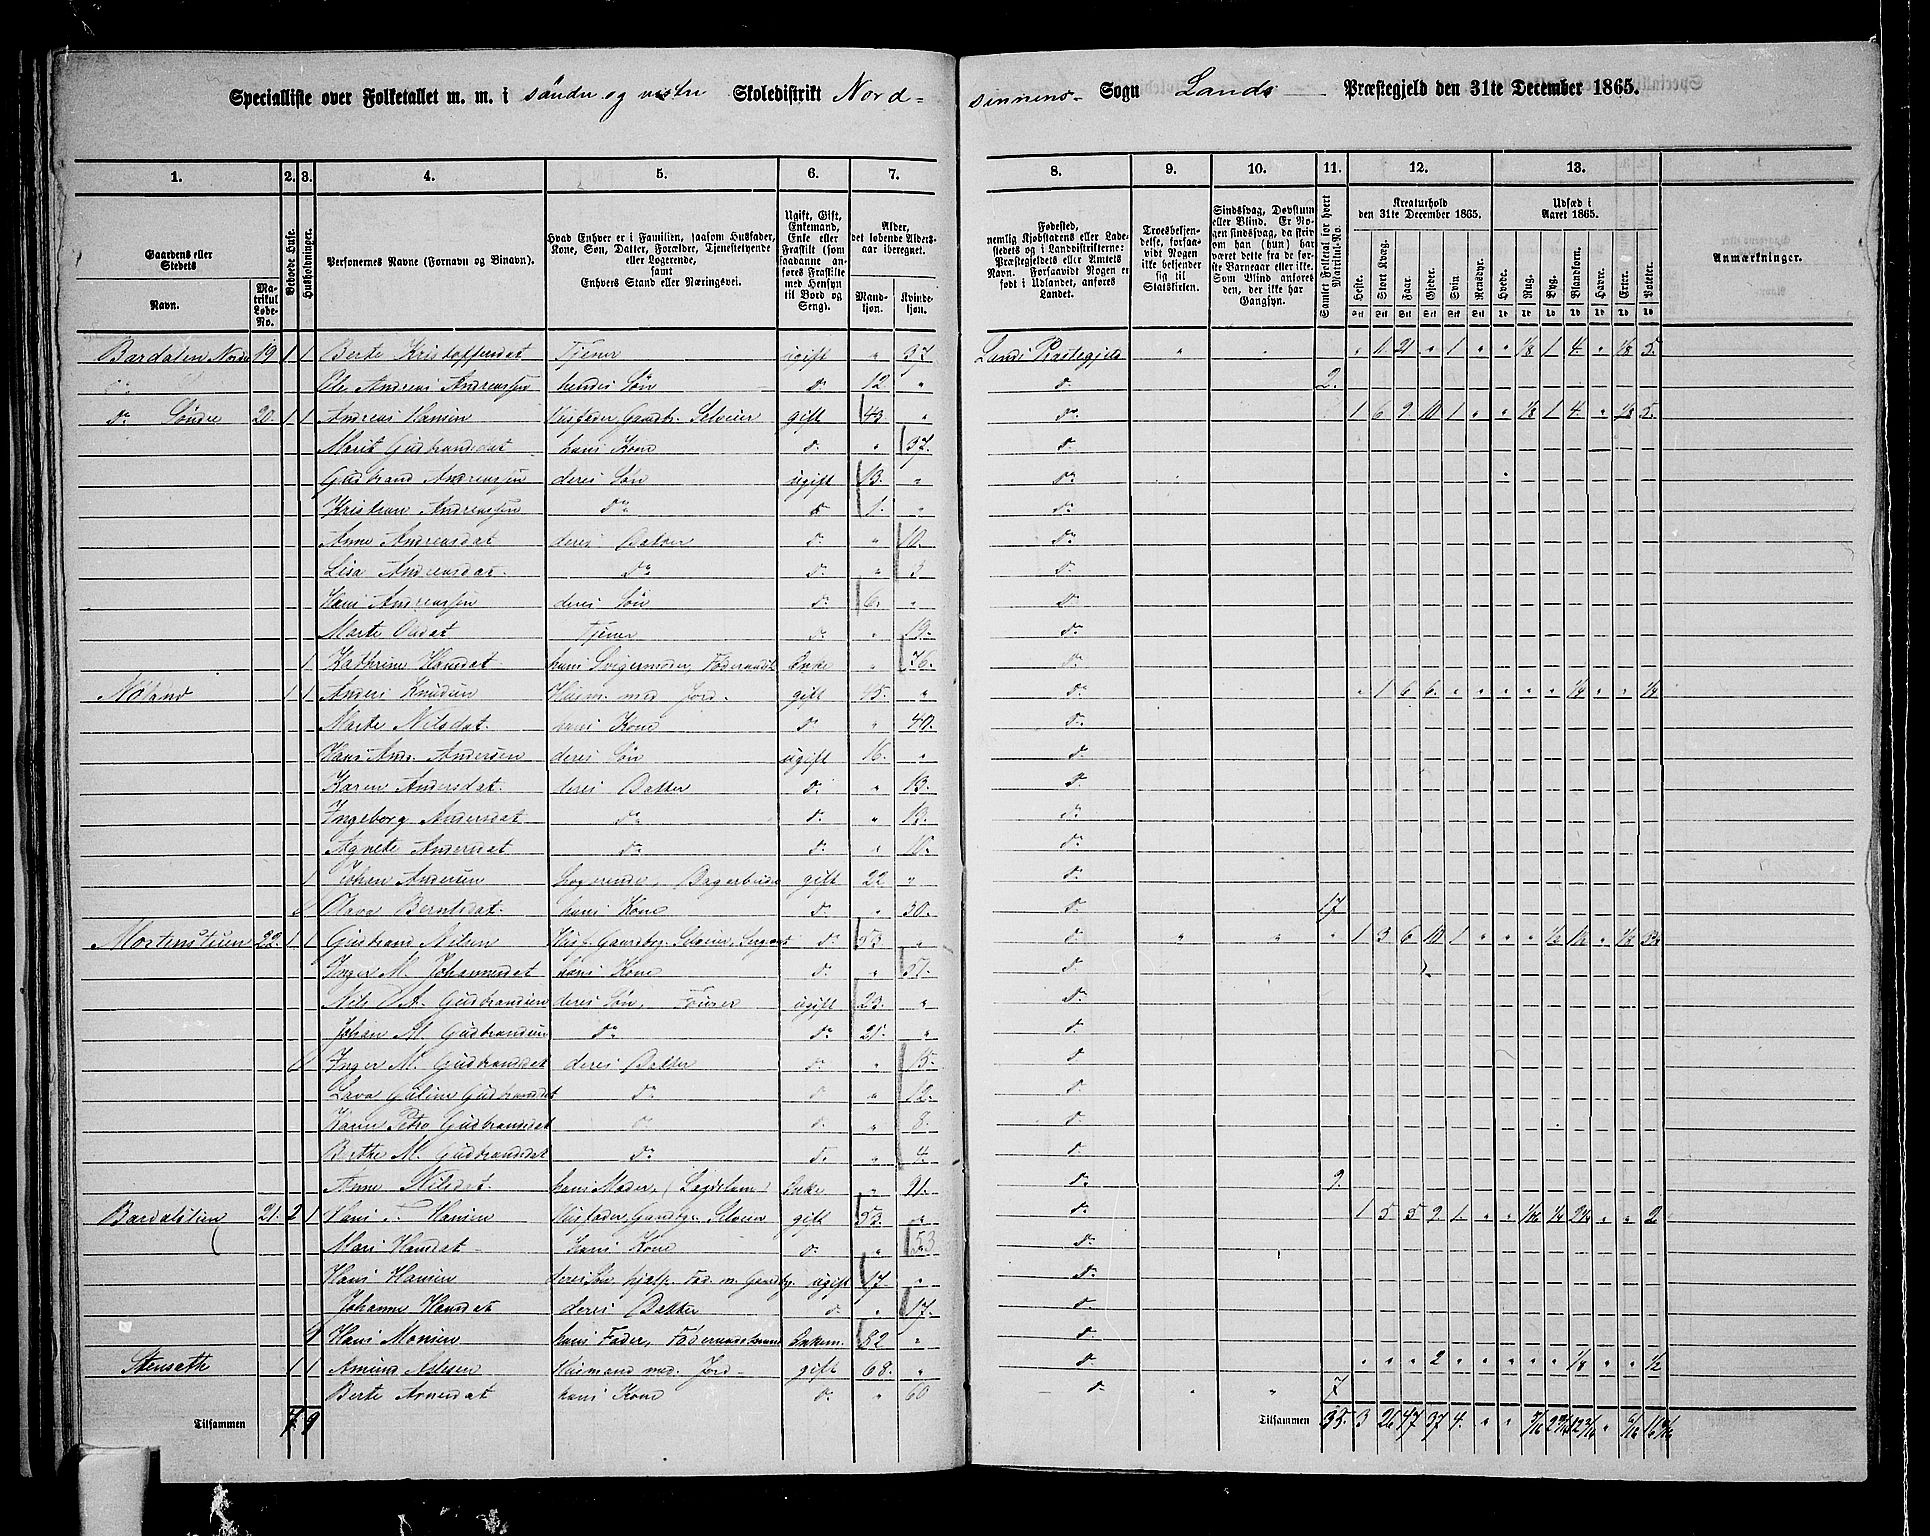 Specialliste over Folketallet m. m. i søndre og vestre Skoledistrikt Nord- sinnens Sogn Lands Præstegjeld den 31te December 1865.
1. 2. 3. 4. 5. 6. 7. 8. 9. 10. 11. 12. 13.
Gaardens eller Stedets
Navn.
Matrikul Løbe-No.
Beboede Huse.
Husholdninger.
Personernes Navne (Fornavn og Binavn).
Hvad Enhver er i Familien, saasom Husfader, Kone, Søn, Datter, Forældre, Tjenestetyende eller Logerende,
samt
Enhvers Stand eller Næringsvei.
Ugift, Gift, Enkemand, Enke eller Fraskilt (som saadanne anføres Fraskilte med Hensyn til Bord og Seng).
Alder, det løbende Aldersaar iberegnet.
Mandkjøn. Kvindekjøn.
Fødested, nemlig Kjøbstadens eller Ladestedets og i Landdistrikterne: Præstegjeldets eller Amtets Navn. Forsaavidt Nogen er født i Udlandet, anføres Landet.
Troesbekjendelse, forsaavidt Nogen ikke bekjender sig til Statskirken.
Sindssvag, Døvstum eller Blind. Er Nogen sindssvag, da skrives om han (hun) har været dette fra de første Barneaar eller ikke. Som Blind anføres den, der ikke har Gangsyn.
Samlet Folketal for hvert Matrikul-No.
Kreaturhold den 31te December 1865.
Heste. Stort Kvæg. Faar. Gjeder. Svin. Rensdyr.
Udsæd i Aaret 1865.
Hvede. Rug. Byg. Blandkorn. Havre. Erter. Poteter.
Anmærkninger.
Bardalen Nordre 19 1 1 Berte Kristoffersdat Tjener ugift " 37 Lands Præstegjeld " 1 2 " 1 " " 1/8 1 4 " 1/8 5
Ole Andreas Andreassen hendes Søn do 12 " do 2.
do Søndre 20 1 1 Andreas Hansen Husfader, Gaardb. Selveier gift 43 " do 1 6 9 10 1 " " 1/8 1 4 " 1/8 5
Marit Gudbrandsdat hans Kone do " 37 do
Gudbrand Andreassen deres Søn ugift 13 " do
Kristian Andreassen do do 1 " do
Anne Andreasdat deres Datter do " 10 do
Lisa Andreasdat do do " 3 do
Hans Andreassen deres Søn do 6 " do
Marte Olsdat Tjener do " 19 do
1 Kathrine Hansdat hans Svigermoder, Føderaadsk. Enke " 76 do
Nøland 1 1 Anders Knudsen Husm. med Jord gift 45 " do " 1 6 6 " " " " " 1/4 " " 1/4
Marte Nilsdat hans Kone do " 40 do
Hans Andr. Andersen deres Søn ugift 16 " do
Karen Andersdat deres Datter do " 13 do
Ingeborg Andersdat do do " 13 do
Agnete Andersdat do do " 10 do
1 Johan Andersen Logerende, gift 22 " do
Olava Berntsdat hans Kone do " 30 do 17
Mortenstuen 22 1 1 Gudbrand Nilsen Husf. Gaardbr. Selveier, Sergeant do 53 " do " " " 1 3 6 10 1 " " " 1/2 " 1/8
Inger M. Johannesdat hans Kone do " 51 do
Nils A. Gudbrandsen deres Søn, Fourer ugift 23 " do
Johan M. Gudbrandsen do do 21 " do
Inger M. Gudbrandsdat deres Datter do " 15 do
Lava Galine Gudbrandsdat do do " 12 do
Karen Petra Gudbrandsdat do do " 8 do
Berthe M. Gudbrandsdat do do " 4 do
Anne Nilsdat hans Moder, (Lægdslem) Enke " 91 do 9
Bardalstuen 21 2 1 Hans F. Hansen Husfader, Gaardbr. Selveier gift 53 " do 1 5 5 9 1 " " 1/16 1/4 2 1/4 " " 2
Mari Hansdat hans Kone do " 53 do
Hans Hansen deres Søn hjælp. Fad. m. Gaardbr. ugift 17 " do
Johanne Hansdat deres Datter do " 17 do
Hans Monsen hans Fader, Føderaadsmand Enkem. 82 " do
Stensæth 1 1 Amund Nilsen Husmand med Jord gift 68 " do " " " 2 " " " " " 1/8 " " 1/2
Berte Arnesdat hans Kone do " 60 do " " 7
Tilsammen 7 9 Tilsammen 35 3 26 47 37 4 " "